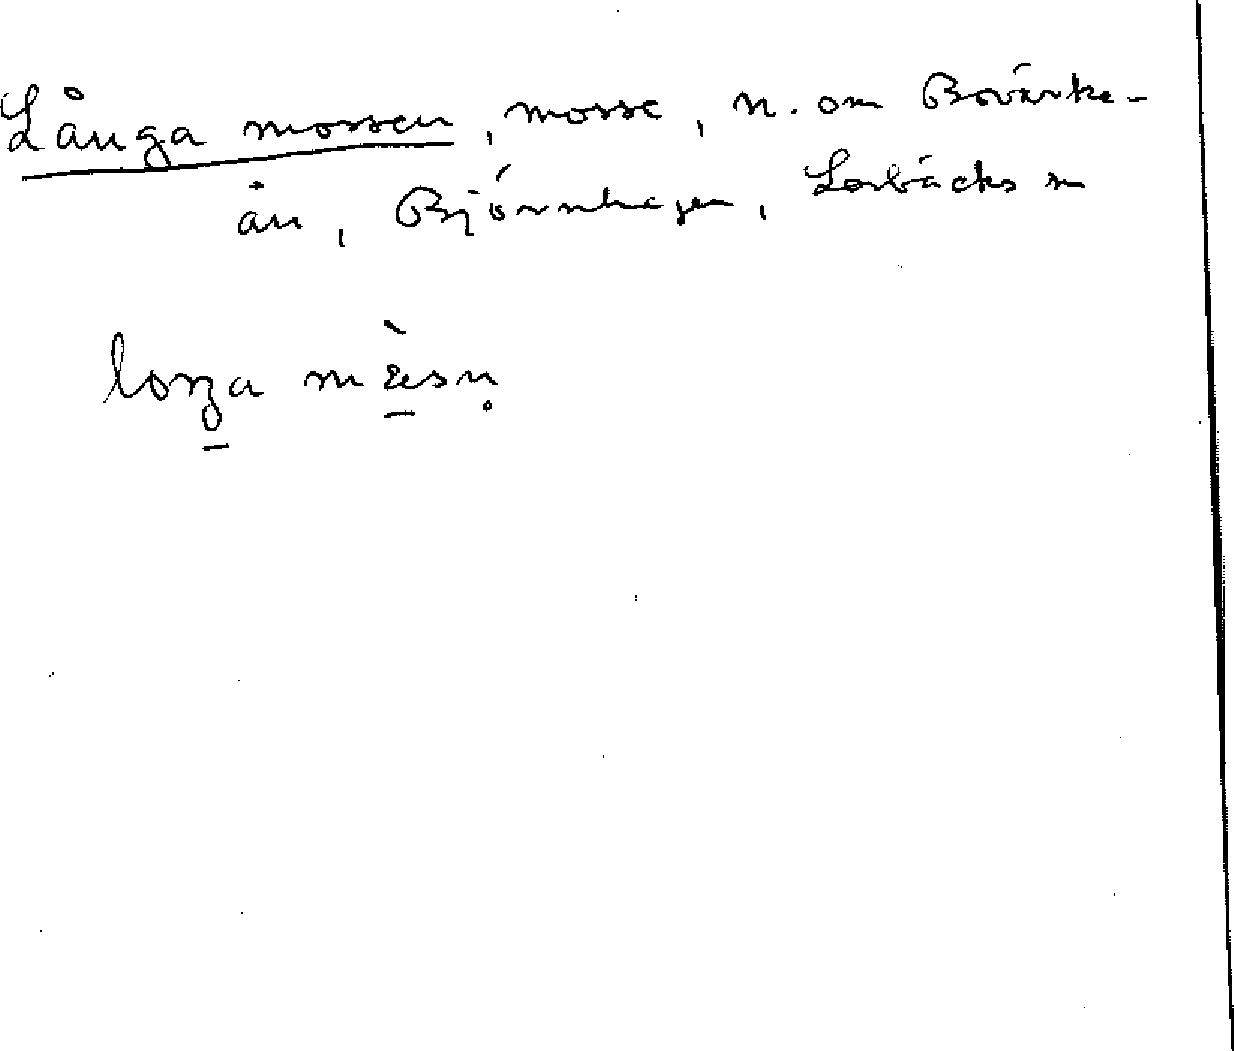 Långa mossen, mosse, n. om Bovärke-
ån, Björnhagen, Losbäcks m
loŋa mèsn̥